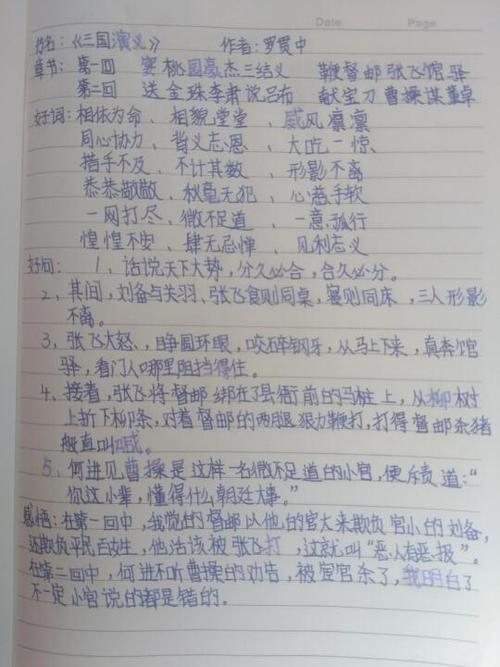 Date Page
书名:《三国演义》 作者:罗贯中
章节:第一回 宴桃园豪杰三结义 鞭督邮张飞馆驿
第二回 送金珠李肃说吕布 献宝刀曹操谋董卓
好词:相依为命、相貌堂堂、威风凛凛
同心协力、背义忘恩、大吃一惊
措手不及、不计其数、形影不离
恭恭敬敬、秋毫无犯、心慈手软
一网打尽、微不足道、一意孤行
惶惶不安、肆无忌惮、见利忘义
好句:1、话说天下大势,分久必合,合久必分。
2、其间,刘备与关羽、张飞食则同桌,寝则同床,三人形影
不离。
3、张飞大怒、,睁圆环眼,咬碎钢牙,从马上下来,直奔馆
驿,看门人哪里阻挡得住。
4、接着,张飞将督邮绑在了县衙前的马桩上,从柳树
上折下柳条,对着督邮的两腿狠力鞭打,打得督邮杀猪
般直叫喊。
5、何进见曹操是这样一名微不足道的小官,便斥责道:“
你这小辈,懂得什么朝廷大事。”
感悟:在第一回中,我觉的督邮以他的官大来欺负官小的刘备,
还欺负平民百姓,他活该被张飞打,这就叫“恶人有恶报”。
在第二回中,何进不听曹操的劝告,被宦官杀了,我明白了
不一定小官说的都是错的。